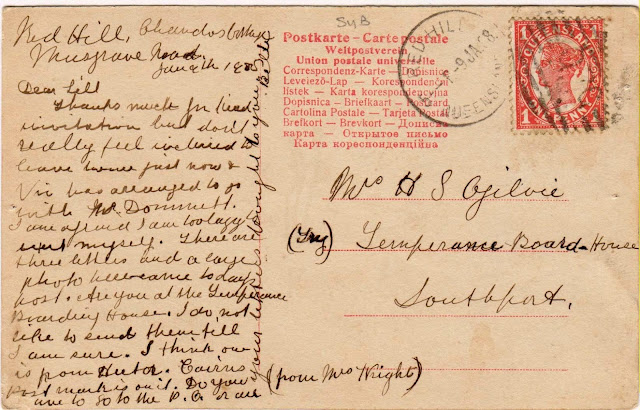 Red Hill, Chandos Cottage
Musgrave Road.
Jan 9th 1908
Dear Lill
Thanks much for kind
invitation but don't
really feel inclined to
leave home just now &
Viv has arranged to go
with Mr Dommett.
I am afraid I am too lazy to
myself. There are
three letters and a large
photo here came to days
post. Are you at the Temperance
Boarding House. I do not
like to send them till
I am sure. I think one
is from Hector. Cairns
Post mark is on it. Do you
have to go to the P.O. or are
your letters brought to you
Belle
SyB
Postkarte – Carte postale
Weltpostverein
Union postale universelle
Correspondenz-Karte – Dopisnica
Levelező-Lap – Korespondenční
lístek – Karta korespondencyjna
Dopisnica – Briefkaart – Postcard
Cartolina Postale – Tarjeta Postal
Brefkort – Brevkort – Дописна
карта – Открытое письмо
Карта кореспонденційна
RED HILL
9 JA 08
QUEENSLAND
QUEENSLAND
1 1
ONE PENNY
Mrs H S Ogilvie
(Try) Temperance Board-House
Southport.
(from Mrs Wright)